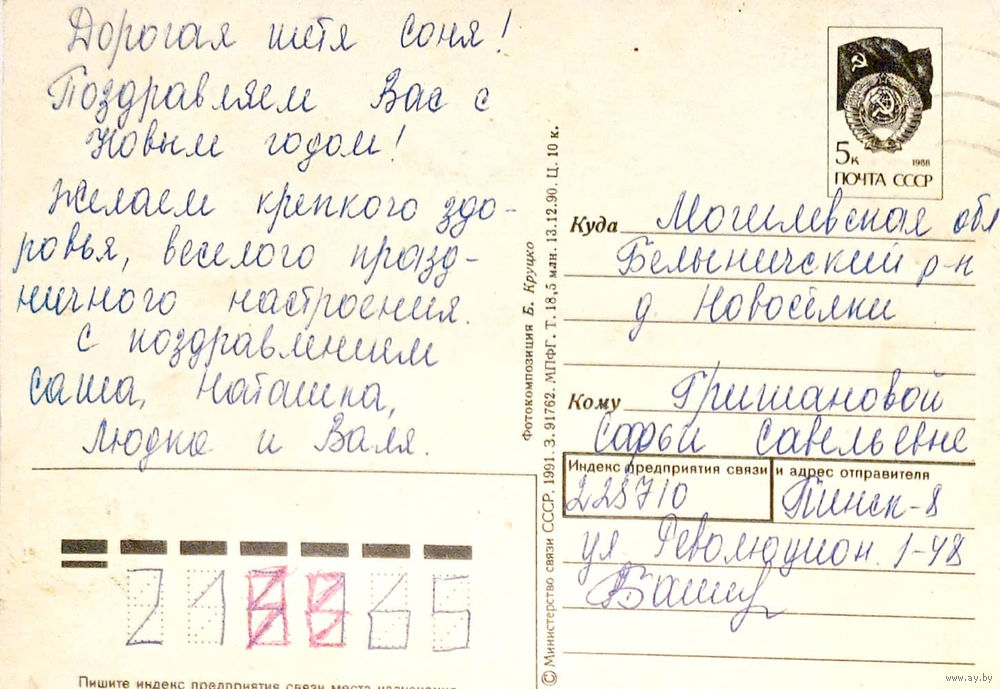 Дорогая тётя Соня!
Поздравляем Вас с
Новым годом!
Желаем крепкого здо-
ровья, веселого празд-
ничного настроения.
С поздравлением
Саша, Наташка,
Людка и Валя.
5к 1988
ПОЧТА СССР
Куда Могилевская обл
Белыничский р-н
д. Новосёлки
Кому Гришановой
Софьи Савельевне
Индекс предприятия связи и адрес отправителя
225710 Пинск-8
ул. Революцион. 1-48
Пишите индекс предприятия связи места назначения
© Министерство связи СССР. 1991. З. 91762. МПФГ. Т. 18,5 млн. 13.12.90. Ц. 10 к.
Фотокомпозиция Б. Круцко
www.ay.by